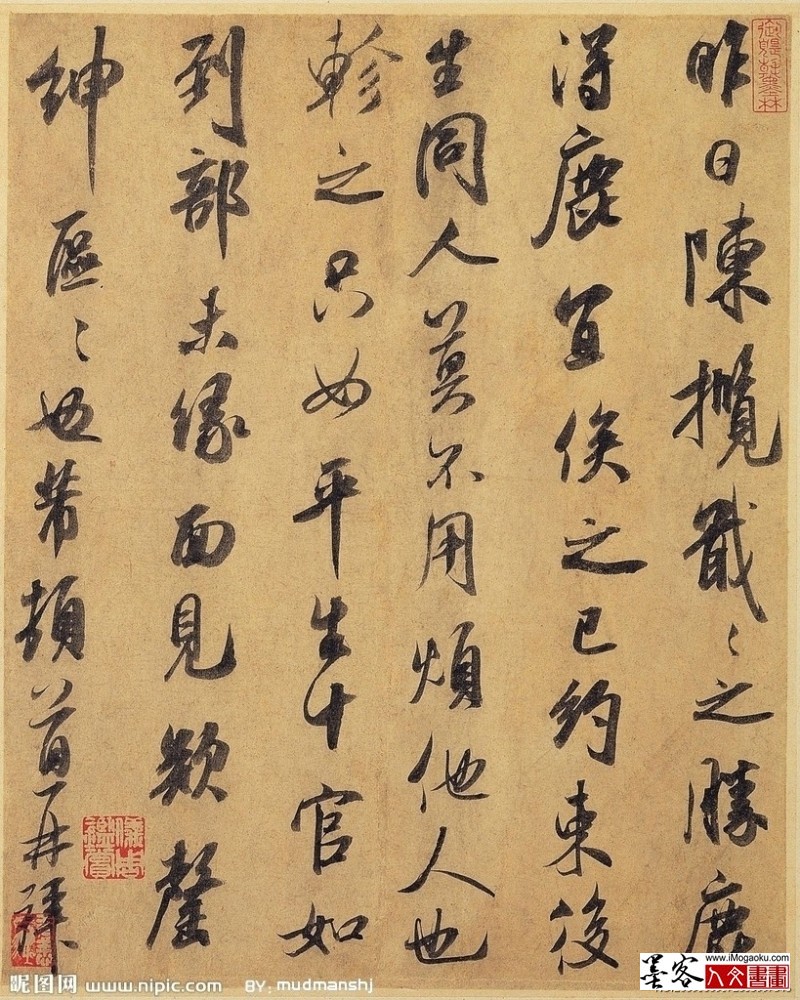 昨日陳攬戢〻之勝鹿
得鹿宜俟之已約束後
生同人莫不用煩他人也
軫之只如平生十官如
到部未緣面見欵罄
紳區〻也芾頓首再拜
儀周鑑賞
昵图网 www.nipic.com BY: mudmanshj
墨客 www.iMogaoku.com 人文書畫